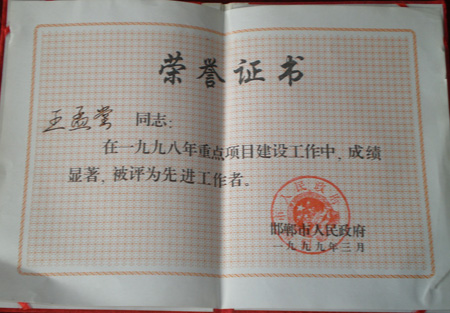 荣誉证书
王孟堂 同志：
在一九九八年重点项目建设工作中，成绩
显著，被评为先进工作者。
邯郸市人民政府
一九九九年三月